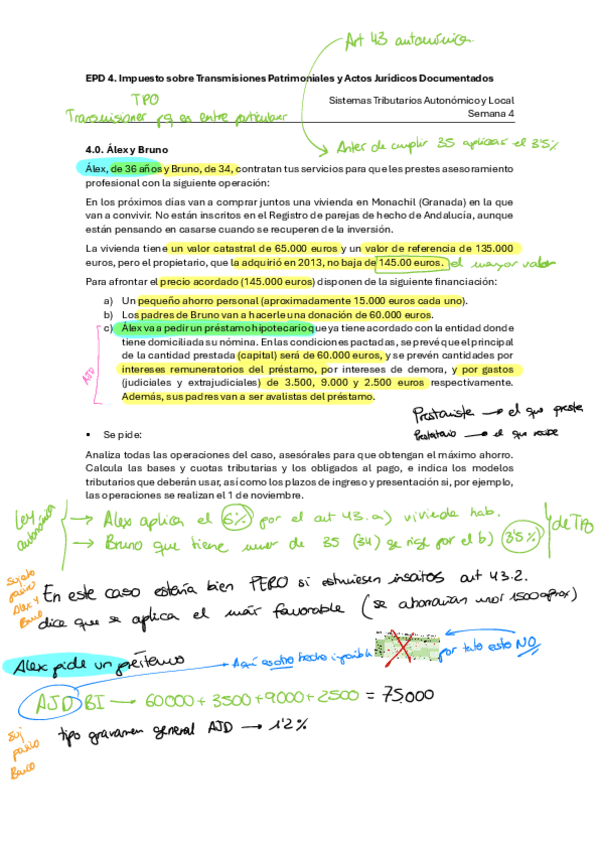 Art 43 autonómica
EPD 4. Impuesto sobre Transmisiones Patrimoniales y Actos Jurídicos Documentados
TPO
Sistemas Tributarios Autonómico y Local
Transmisiones pq es entre particular
Semana 4
Antes de cumplir 35 aplicas el 3'5%
4.0. Álex y Bruno
Álex, de 36 años y Bruno, de 34, contratan tus servicios para que les prestes asesoramiento
profesional con la siguiente operación:
En los próximos días van a comprar juntos una vivienda en Monachil (Granada) en la que
van a convivir. No están inscritos en el Registro de parejas de hecho de Andalucía, aunque
están pensando en casarse cuando se recuperen de la inversión.
La vivienda tiene un valor catastral de 65.000 euros y un valor de referencia de 135.000
euros, pero el propietario, que la adquirió en 2013, no baja de 145.00 euros. el mayor valor
Para afrontar el precio acordado (145.000 euros) disponen de la siguiente financiación:
a) Un pequeño ahorro personal (aproximadamente 15.000 euros cada uno).
b) Los padres de Bruno van a hacerle una donación de 60.000 euros.
c) Álex va a pedir un préstamo hipotecario que ya tiene acordado con la entidad donde
tiene domiciliada su nómina. En las condiciones pactadas, se prevé que el principal
de la cantidad prestada (capital) será de 60.000 euros, y se prevén cantidades por
intereses remuneratorios del préstamo, por intereses de demora, y por gastos
(judiciales y extrajudiciales) de 3.500, 9.000 y 2.500 euros respectivamente.
Además, sus padres van a ser avalistas del préstamo.
AJD
Prestamista → el que presta
▪ Se pide:
Prestatario → el que recibe
Analiza todas las operaciones del caso, asesórales para que obtengan el máximo ahorro.
Calcula las bases y cuotas tributarias y los obligados al pago, e indica los modelos
tributarios que deberán usar, así como los plazos de ingreso y presentación si, por ejemplo,
las operaciones se realizan el 1 de noviembre.
Ley autonómica
→ Alex aplica el 6% por el aut 43.a) vivienda hab.
→ Bruno que tiene menor de 35 (34) se rige por el b) 3'5%
de TPO
sujeto pasivo Alex y Bruno
En este caso estaría bien PERO si estuviesen inscritos aut 43.2.
dice que se aplica el más favorable (se ahorrarían unos 1500 aprox)
Alex pide un préstamo → Aquí es otro hecho imponible por tanto esto NO
AJD BI → 60000 + 3500 + 9000 + 2500 = 75.000
tipo gravamen general AJD → 1'2%
suj pasivo Banco